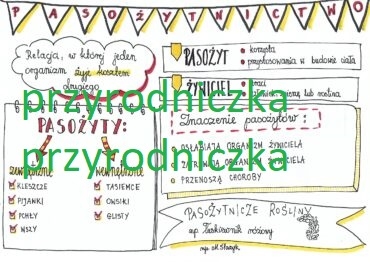 PASOŻYTNICTWO
Relacja, w której jeden
organizm żyje kosztem
drugiego
PASOŻYT
korzysta
przystosowania w budowie ciała
ŻYWICIEL
traci
człowiek, zwierzę lub roślina
przyrodniczka
PASOŻYTY:
zewnętrzne
KLESZCZE
PIJAWKI
PCHŁY
WSZY
wewnętrzne
TASIEMCE
OWSIKI
GLISTY
Znaczenie pasożytów:
OSŁABIAJĄ ORGANIZM ŻYWICIELA
ORGANIZM ŻYWICIELA
PRZENOSZĄ CHOROBY
przyrodniczka
PASOŻYTNICZE ROŚLINY
np. Łuskiewnik różowy